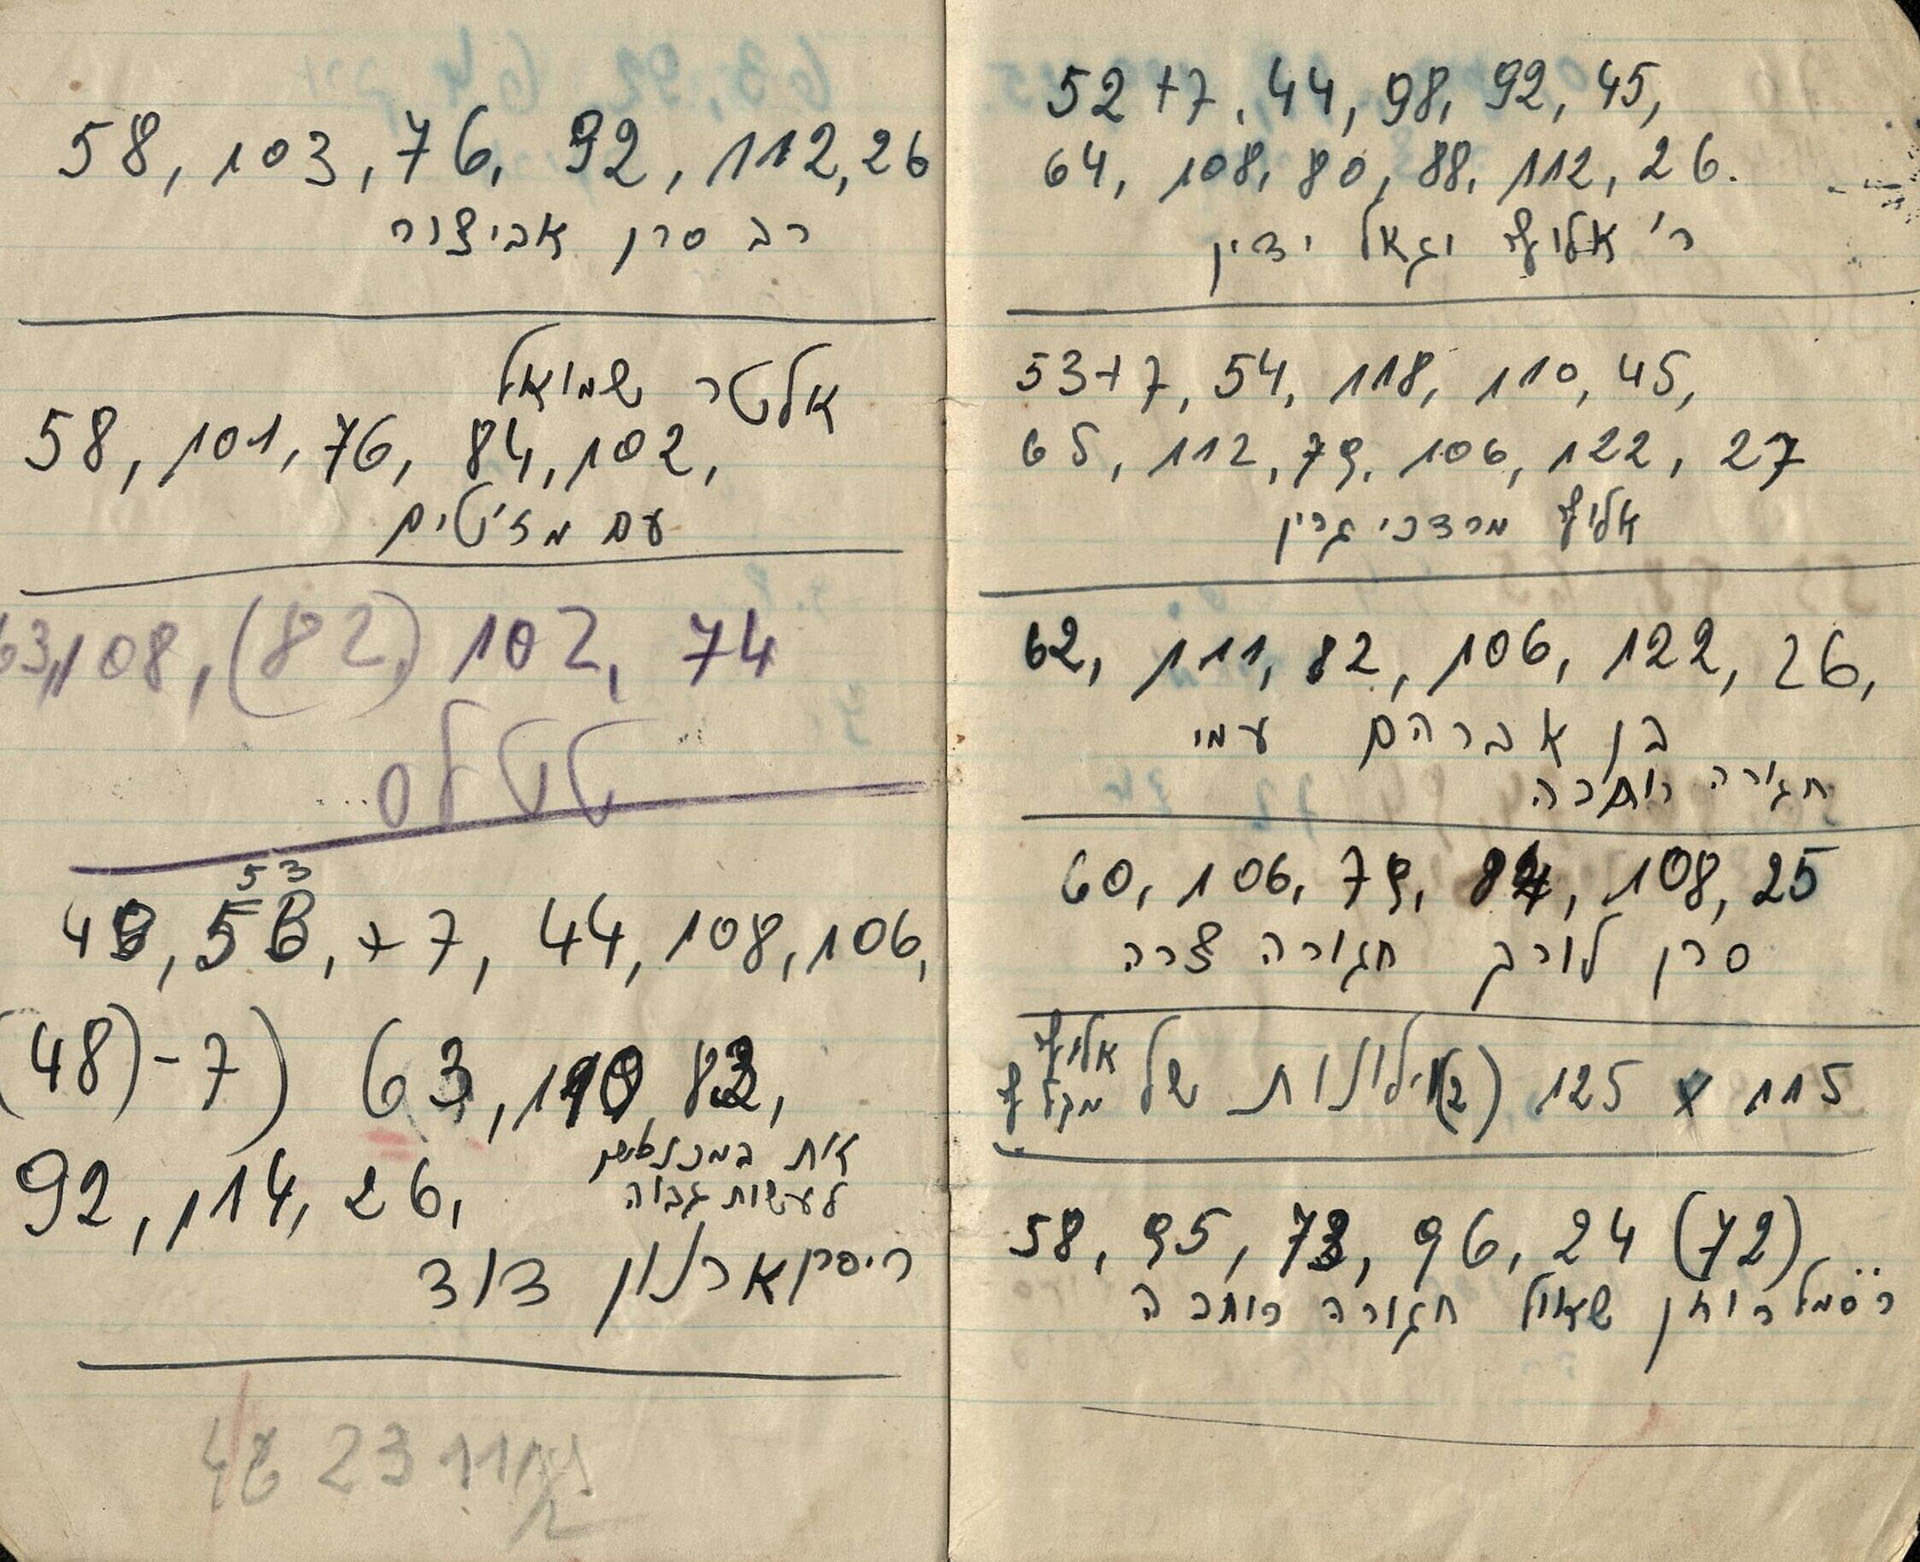 52 + 7, 44, 98, 92, 45,
64, 108, 80, 88, 112, 26.
ר' אלוף יגאל ידין
53 + 7, 54, 118, 110, 45,
65, 112, 79, 106, 122, 27
אלוף מרדכי גרין
62, 111, 82, 106, 122, 26,
בן אברהם עמי
חגורה רותכה
60, 106, 79, 84, 108, 25
סרן לורך חגורה צרה
אלוף
125 x 115 (2) וילונות של מקלף
58, 95, 73, 96, 24 (72)
רסמל רוחן שאול חגורה רותכה
58, 103, 76, 92, 112, 26
רב סרן אביצור
אלטר שמואל
58, 101, 76, 84, 102,
עם מזיטים
63, 108, (82,) 102, 74
טטלס
53
48, 56, + 7, 44, 108, 106,
(48) - 7) 63, 110, 83,
92, 114, 26,
את המכנסים
לעשות גבוה
דוד
48 23 11